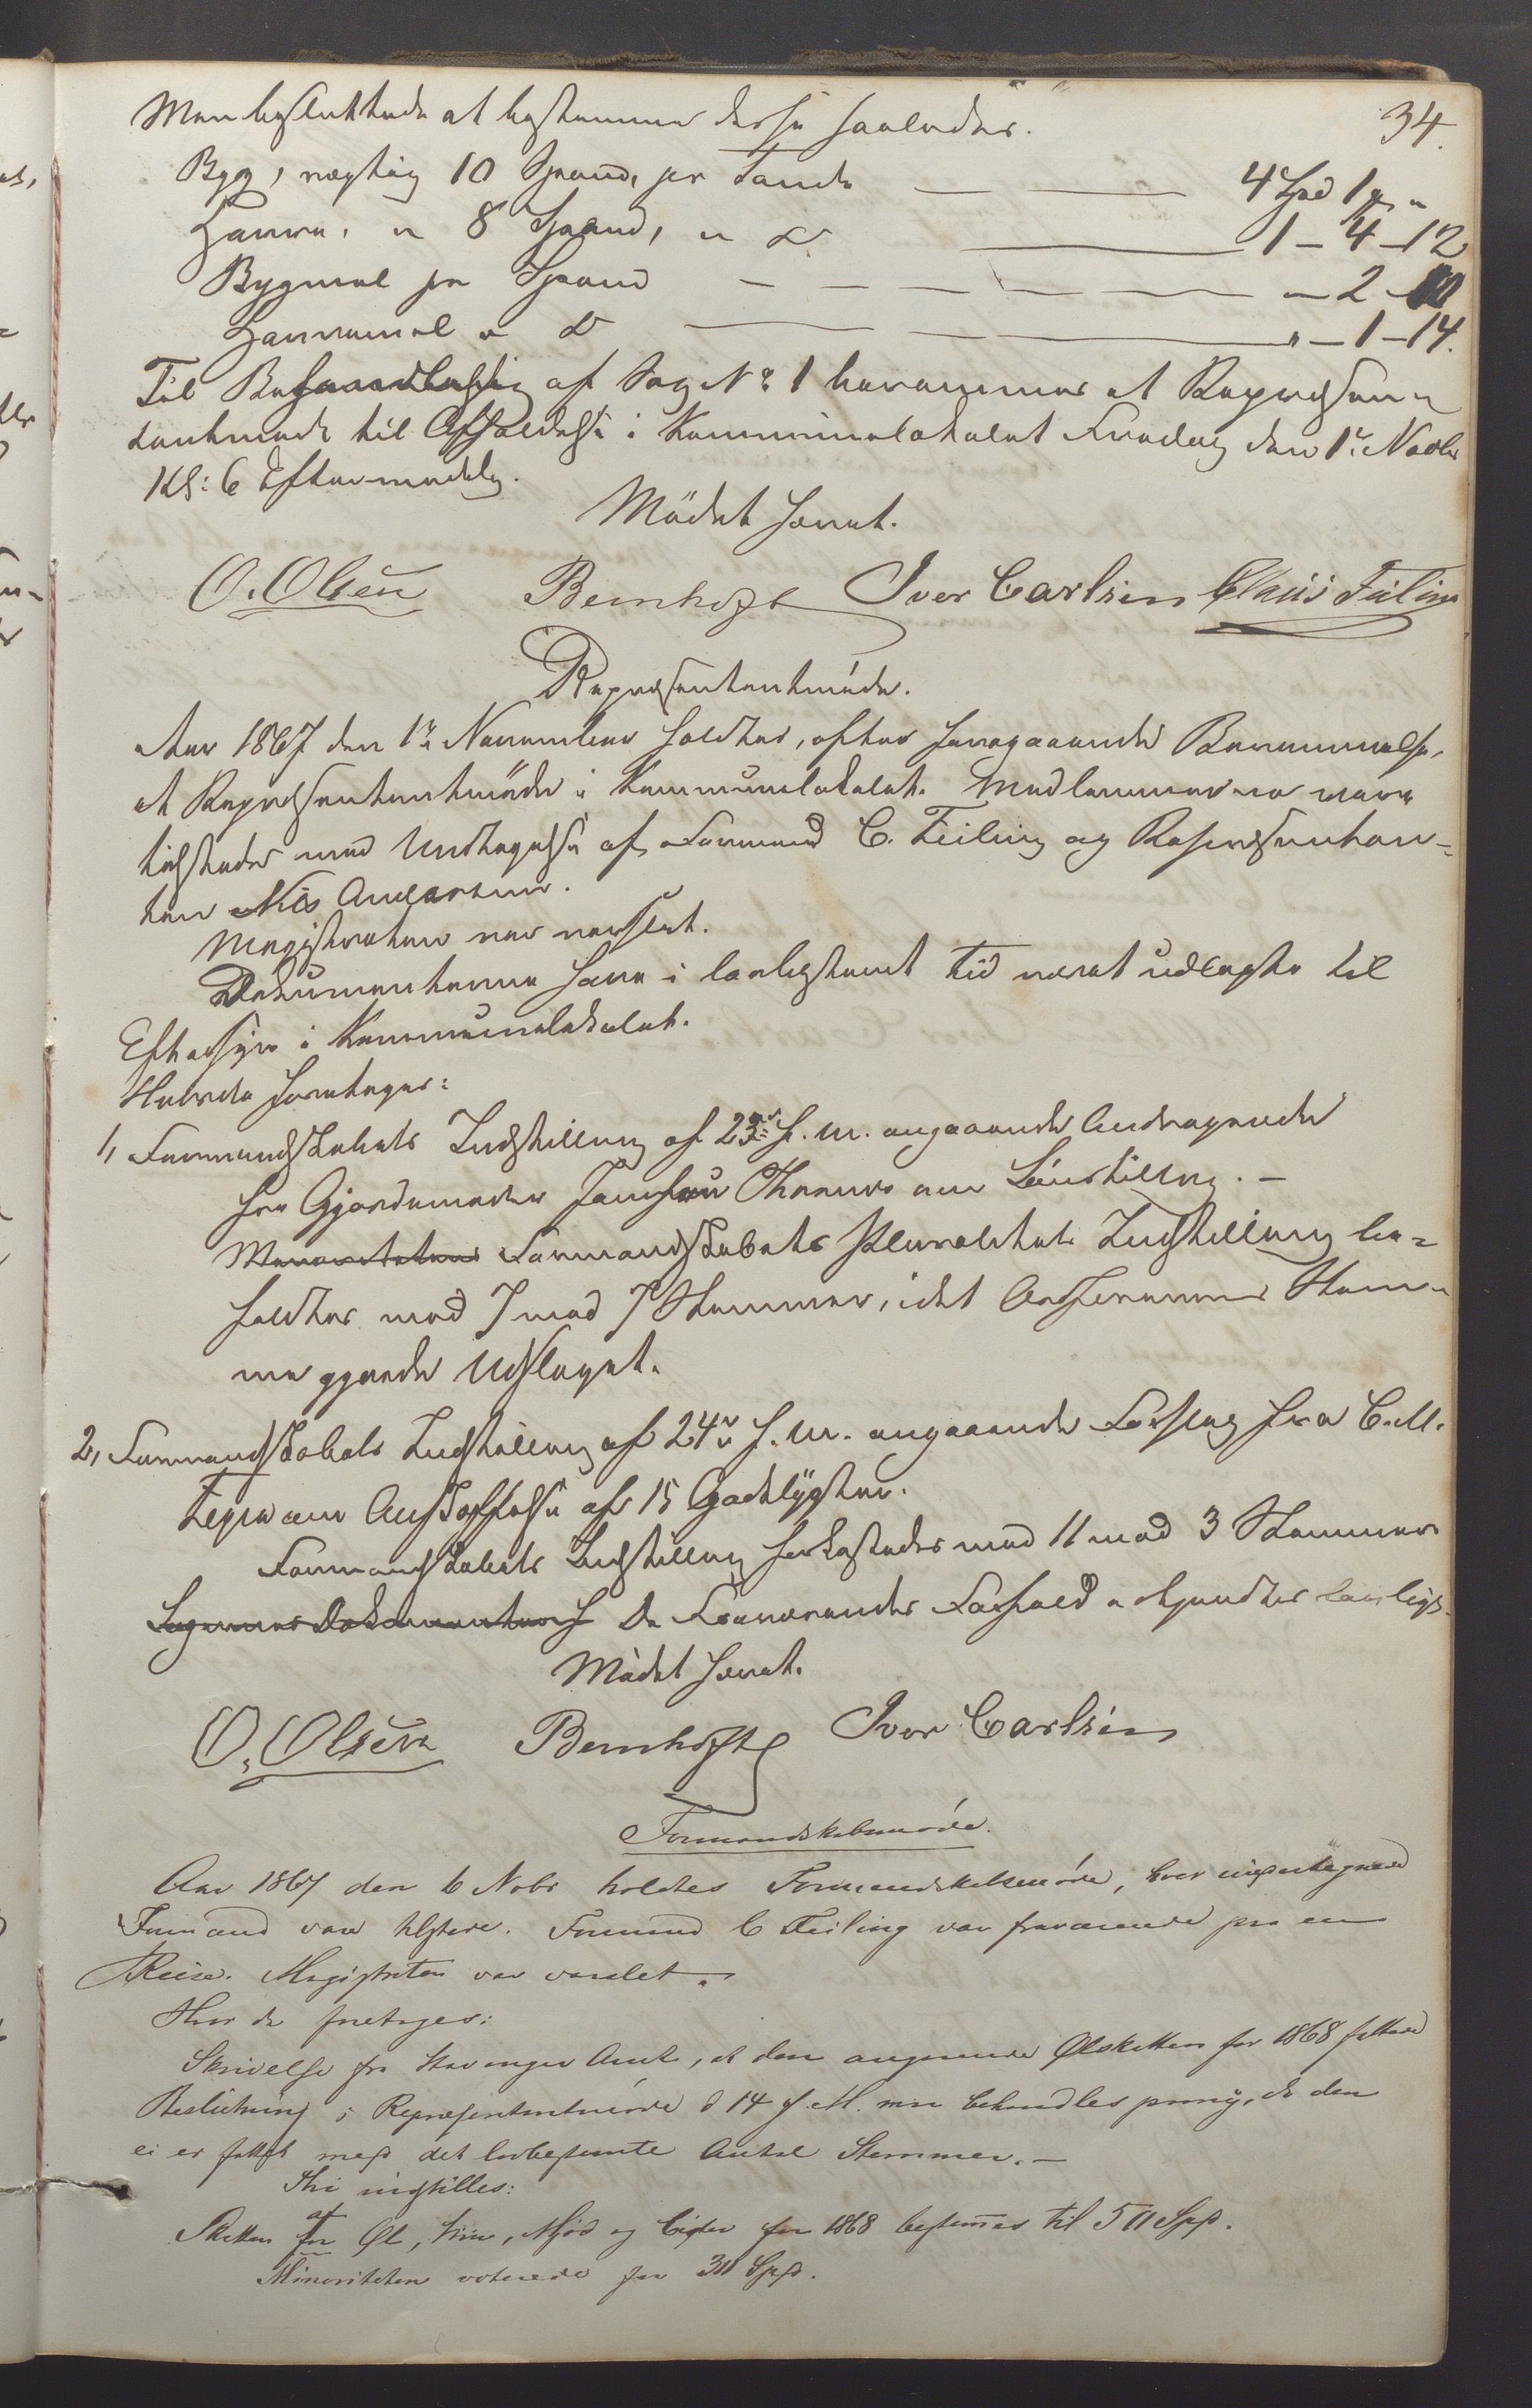 34.
Man besluttede at bestemme disse saaledes.
Byg, vægtig 10 Spand, pr Tønde — — 4 Spd 1 " "
Havre, " 8 Spand, " do — 1 - 4 - 12
Bygmel pr Spand — — — — — " - 2 -
Havremel " do — — " - 1 - 14.
Til Behandling af Sag No 1 berammes et Repræsen-
tantmøde til Afholdelse i Kommunelokalet Fredag den 1ste Novbr
Kl: 6 Eftermiddag.
Mödet hævet.
O. Olsen Bernhoft Iver Carlsen Claus Feiling
Repræsentantmöde.
Aar 1867 den 1ste November holdtes, efter foregaaende Berammelse,
et Repræsentantmöde i Kommunelokalet. Medlemmerne vare
tilstede med Undtagelse af Formand C. Feiling og Repræsentan-
ten Nils Andersen.
Magistraten var varslet.
Dokumenterne have i lovbestemt Tid været udlagte til
Eftersyn i Kommunelokalet.
Hvorda foretages:
1, Formandskabets Indstilling af 23de f. M. angaaende Andragende
fra Gjordemoder om Lönstillæg. –
Formandskabets Pluralitets Indstilling bi-
foldtes med 7 mod 7 Stemmer, idet Ordførerens Stem-
me gjorde Udslaget.
2, Formandskabets Indstilling af 24de f. M. angaaende Forslag fra C. M.
om Anskaffelse af 15 Gadelygter.
Formandskabets Indstilling forkastedes med 11 mod 3 Stemmer
De Fraværendes Forfald erkjendtes lovligt.
Mödet hævet.
O. Olsen Bernhoft Iver Carlsen
Formandskabsmöde.
Aar 1867 den 6 Nobr holdtes Formandskabsmöde, hvor undertegnede
Formænd vare tilstede. Formand C Feiling var fraværende paa en
Reise. Magistraten var varslet.
Hvor da foretoges:
Skrivelse fra Stavanger Amt, at den angaaende Ölskatten for 1868 fattede
Beslutning i Repræsentantmöde d 14 f. M. maa behandles paany, da den
ei er fattet med det lovbestemte Antal Stemmer. –
Thi indstilles:
Skatten af Öl, Viin, Mjöd og Cider for 1868 bestemmes til 511 Spd.
Minoriteten voterede for 311 Spd.